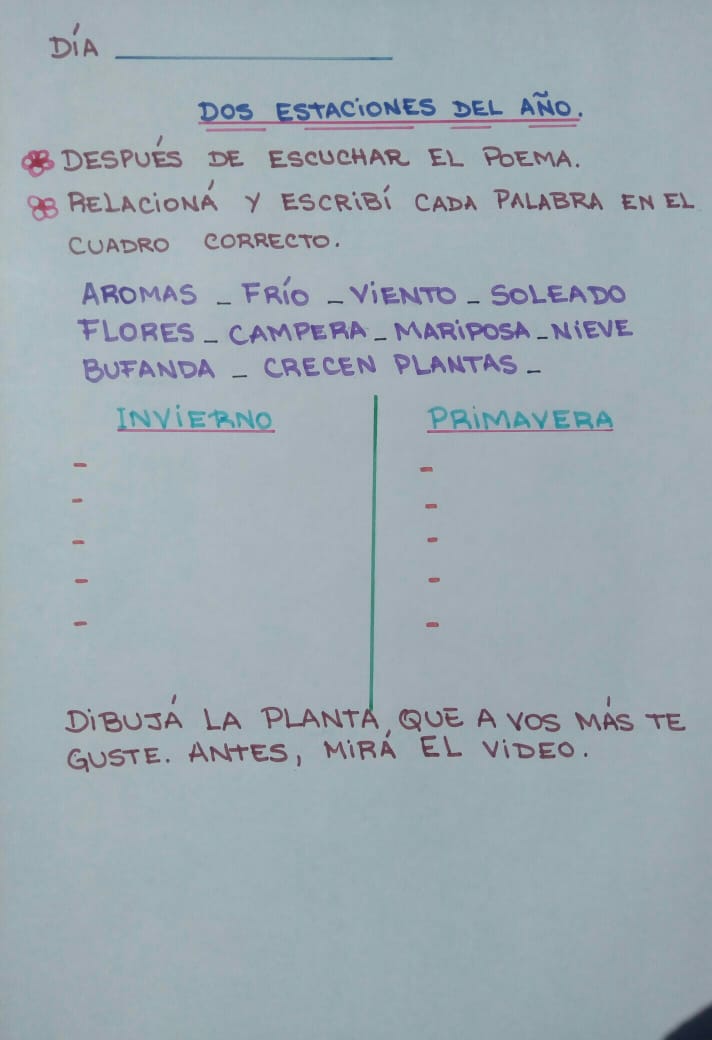 DÍA
DOS ESTACIONES DEL AÑO.
DESPUÉS DE ESCUCHAR EL POEMA.
RELACIONÁ Y ESCRIBÍ CADA PALABRA EN EL
CUADRO CORRECTO.
AROMAS _ FRÍO _ VIENTO _ SOLEADO
FLORES _ CAMPERA _ MARIPOSA _ NIEVE
BUFANDA _ CRECEN PLANTAS _
INVIERNO
-
-
-
-
-
PRIMAVERA
-
-
-
-
-
DIBUJÁ LA PLANTA, QUE A VOS MÁS TE
GUSTE. ANTES, MIRÁ EL VIDEO.